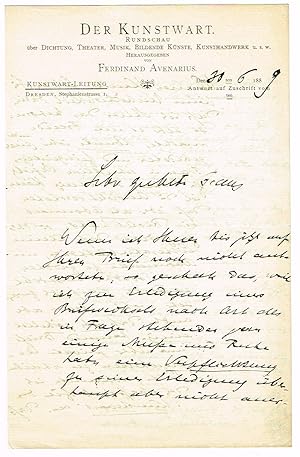 DER KUNSTWART.
RUNDSCHAU
über DICHTUNG, THEATER, MUSIK, BILDENDE KÜNSTE, KUNSTHANDWERK u. s. w.
HERAUSGEGEBEN
VON
FERDINAND AVENARIUS.
KUNSTWART-LEITUNG
DRESDEN, Stephanienstrasse 1.
Den 21 ten 6 1889
Antwort auf Zuschrift vom
ten
Sehr geehrter
Wenn ich Ihnen bis jetzt auf
Ihren Brief noch nicht ant-
wortete, so geschah das, weil
ich zur Erledigung eines
Briefwechsels nach Art des
in Frage stehenden zwar
einige Musse und Ruhe
habe, eine Verpflichtung
zu seiner Erledigung über-
haupt aber nicht aner-